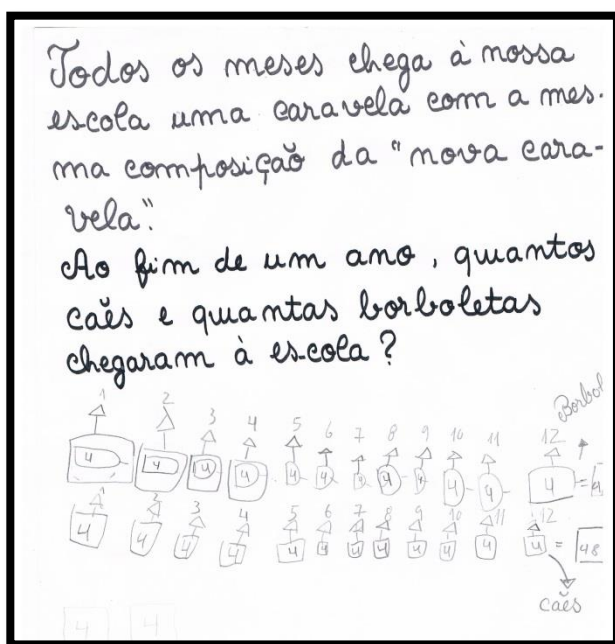 Todos os meses chega à nossa
escola uma caravela com a mes-
ma composição da "nova cara-
vela".
Ao fim de um ano, quantos
cães e quantas borboletas
chegaram à escola?
1 2 3 4 5 6 7 8 9 10 11 12 Borbol
4 4 4 4 4 4 4 4 4 4 4 4 =
1 2 3 4 5 6 7 8 9 10 11 12
4 4 4 4 4 4 4 4 4 4 4 4 = 48
cães
4 4